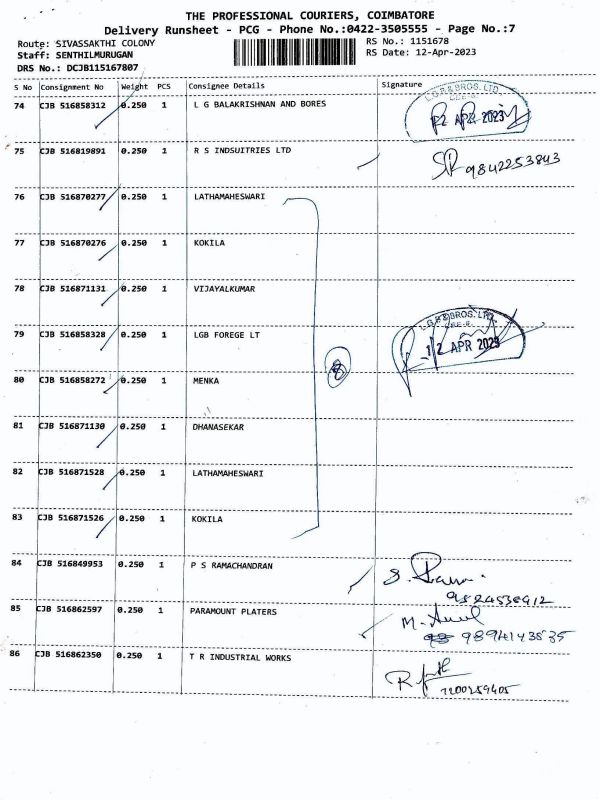 THE PROFESSIONAL COURIERS, COIMBATORE
Delivery Runsheet - PCG - Phone No.:0422-3505555 - Page No.:7
Route: SIVASSAKTHI COLONY
RS No.: 1151678
Staff: SENTHILMURUGAN
RS Date: 12-Apr-2023
DRS No.: DCJB115167807
S No Consignment No Weight PCS Consignee Details Signature
74 CJB 516858312 0.250 1 L G BALAKRISHNAN AND BORES
L.G.B & BROS. LTD.
12 APR 2023
75 CJB 516819891 0.250 1 R S INDSUITRIES LTD 9842253843
76 CJB 516870277 0.250 1 LATHAMAHESWARI
77 CJB 516870276 0.250 1 KOKILA
78 CJB 516871131 0.250 1 VIJAYALKUMAR
79 CJB 516858328 0.250 1 LGB FOREGE LT
L.G.B & BROS. LTD.
12 APR 2023
8
80 CJB 516858272 0.250 1 MENKA
81 CJB 516871130 0.250 1 DHANASEKAR
82 CJB 516871528 0.250 1 LATHAMAHESWARI
83 CJB 516871526 0.250 1 KOKILA
84 CJB 516849953 0.250 1 P S RAMACHANDRAN
85 CJB 516862597 0.250 1 PARAMOUNT PLATERS
9894143535
86 CJB 516862350 0.250 1 T R INDUSTRIAL WORKS
7200259405